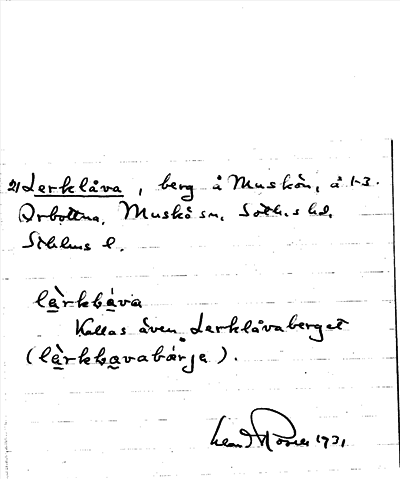 21 Lerklåva, berg å Muskön, å 1-3.
Arbottna, Muskö sn, Soth.s hd,
Sthlms l.
lèrkkåva
Kallas även Lerklåvaberget
(lèrkkavabärje).
1931